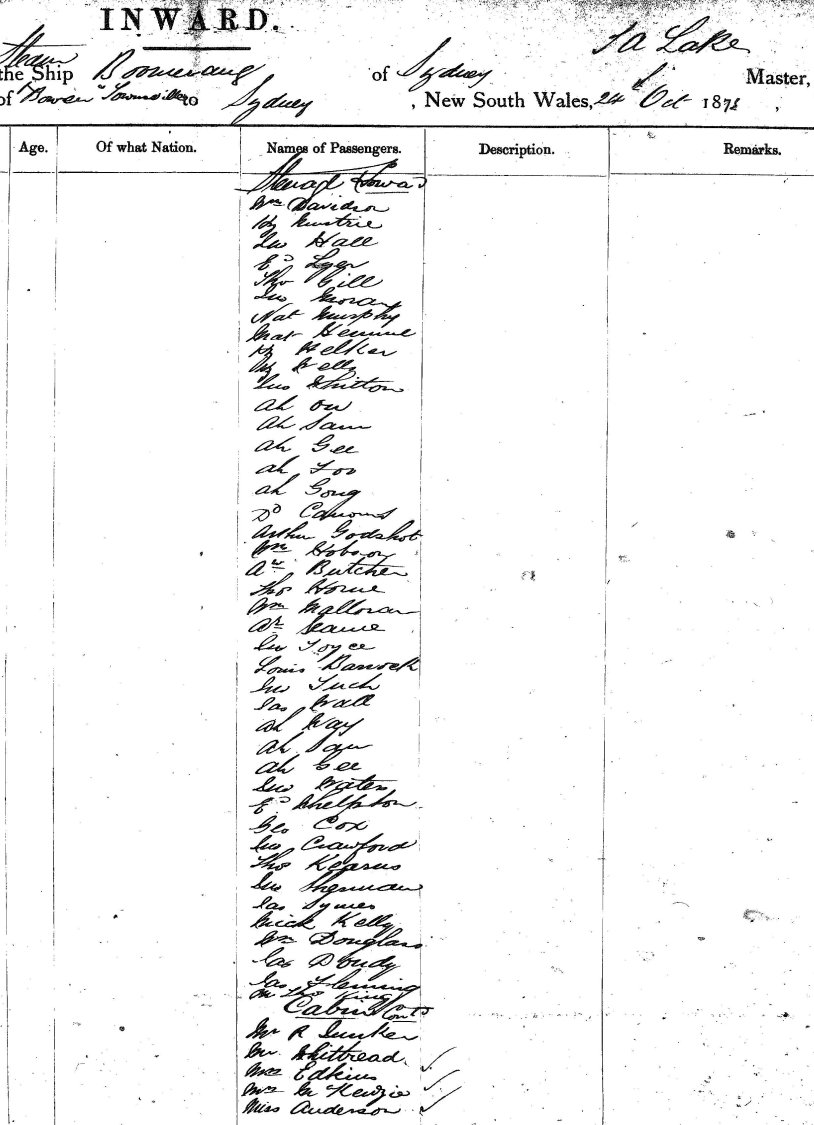 INWARD.
Steam J A Lake
the Ship Boomerang of Sydney Master,
of "Bowen" Townsville to Sydney , New South Wales, 24th Oct 1878 ,
Age. Of what Nation. Names of Passengers. Description. Remarks.
Steerage
Wm Davidson
Hy
Jno Hall
Ed
Tho Gill
Jno Moran
Nat Murphy
Mat
Hy Helker
Kelly
Jno Whitton
Ah On
Ah Sam
Ah Gee
Ah Foo
Ah Gong
Do
Arthur Godshot
Wm Hobson
Aw Butcher
Tho Horne
Wm Malloran
Ar
Jno Joyce
Louis Barwell
Jno Tuch
Jas Wall
Ah Way
Ah
Ah Gee
Jno Waters
Ed Whelpton
Geo Cox
Jno Crawford
Tho Kearns
Jno Sherman
Jas Symes
Mick Kelly
Wm Douglass
Jas Doudy
Jas Fleming
Tho King
Cabin Contd
Mr R Junker
Mr Whittread
Mrs Edkins
Mrs McKenzie
Miss Anderson